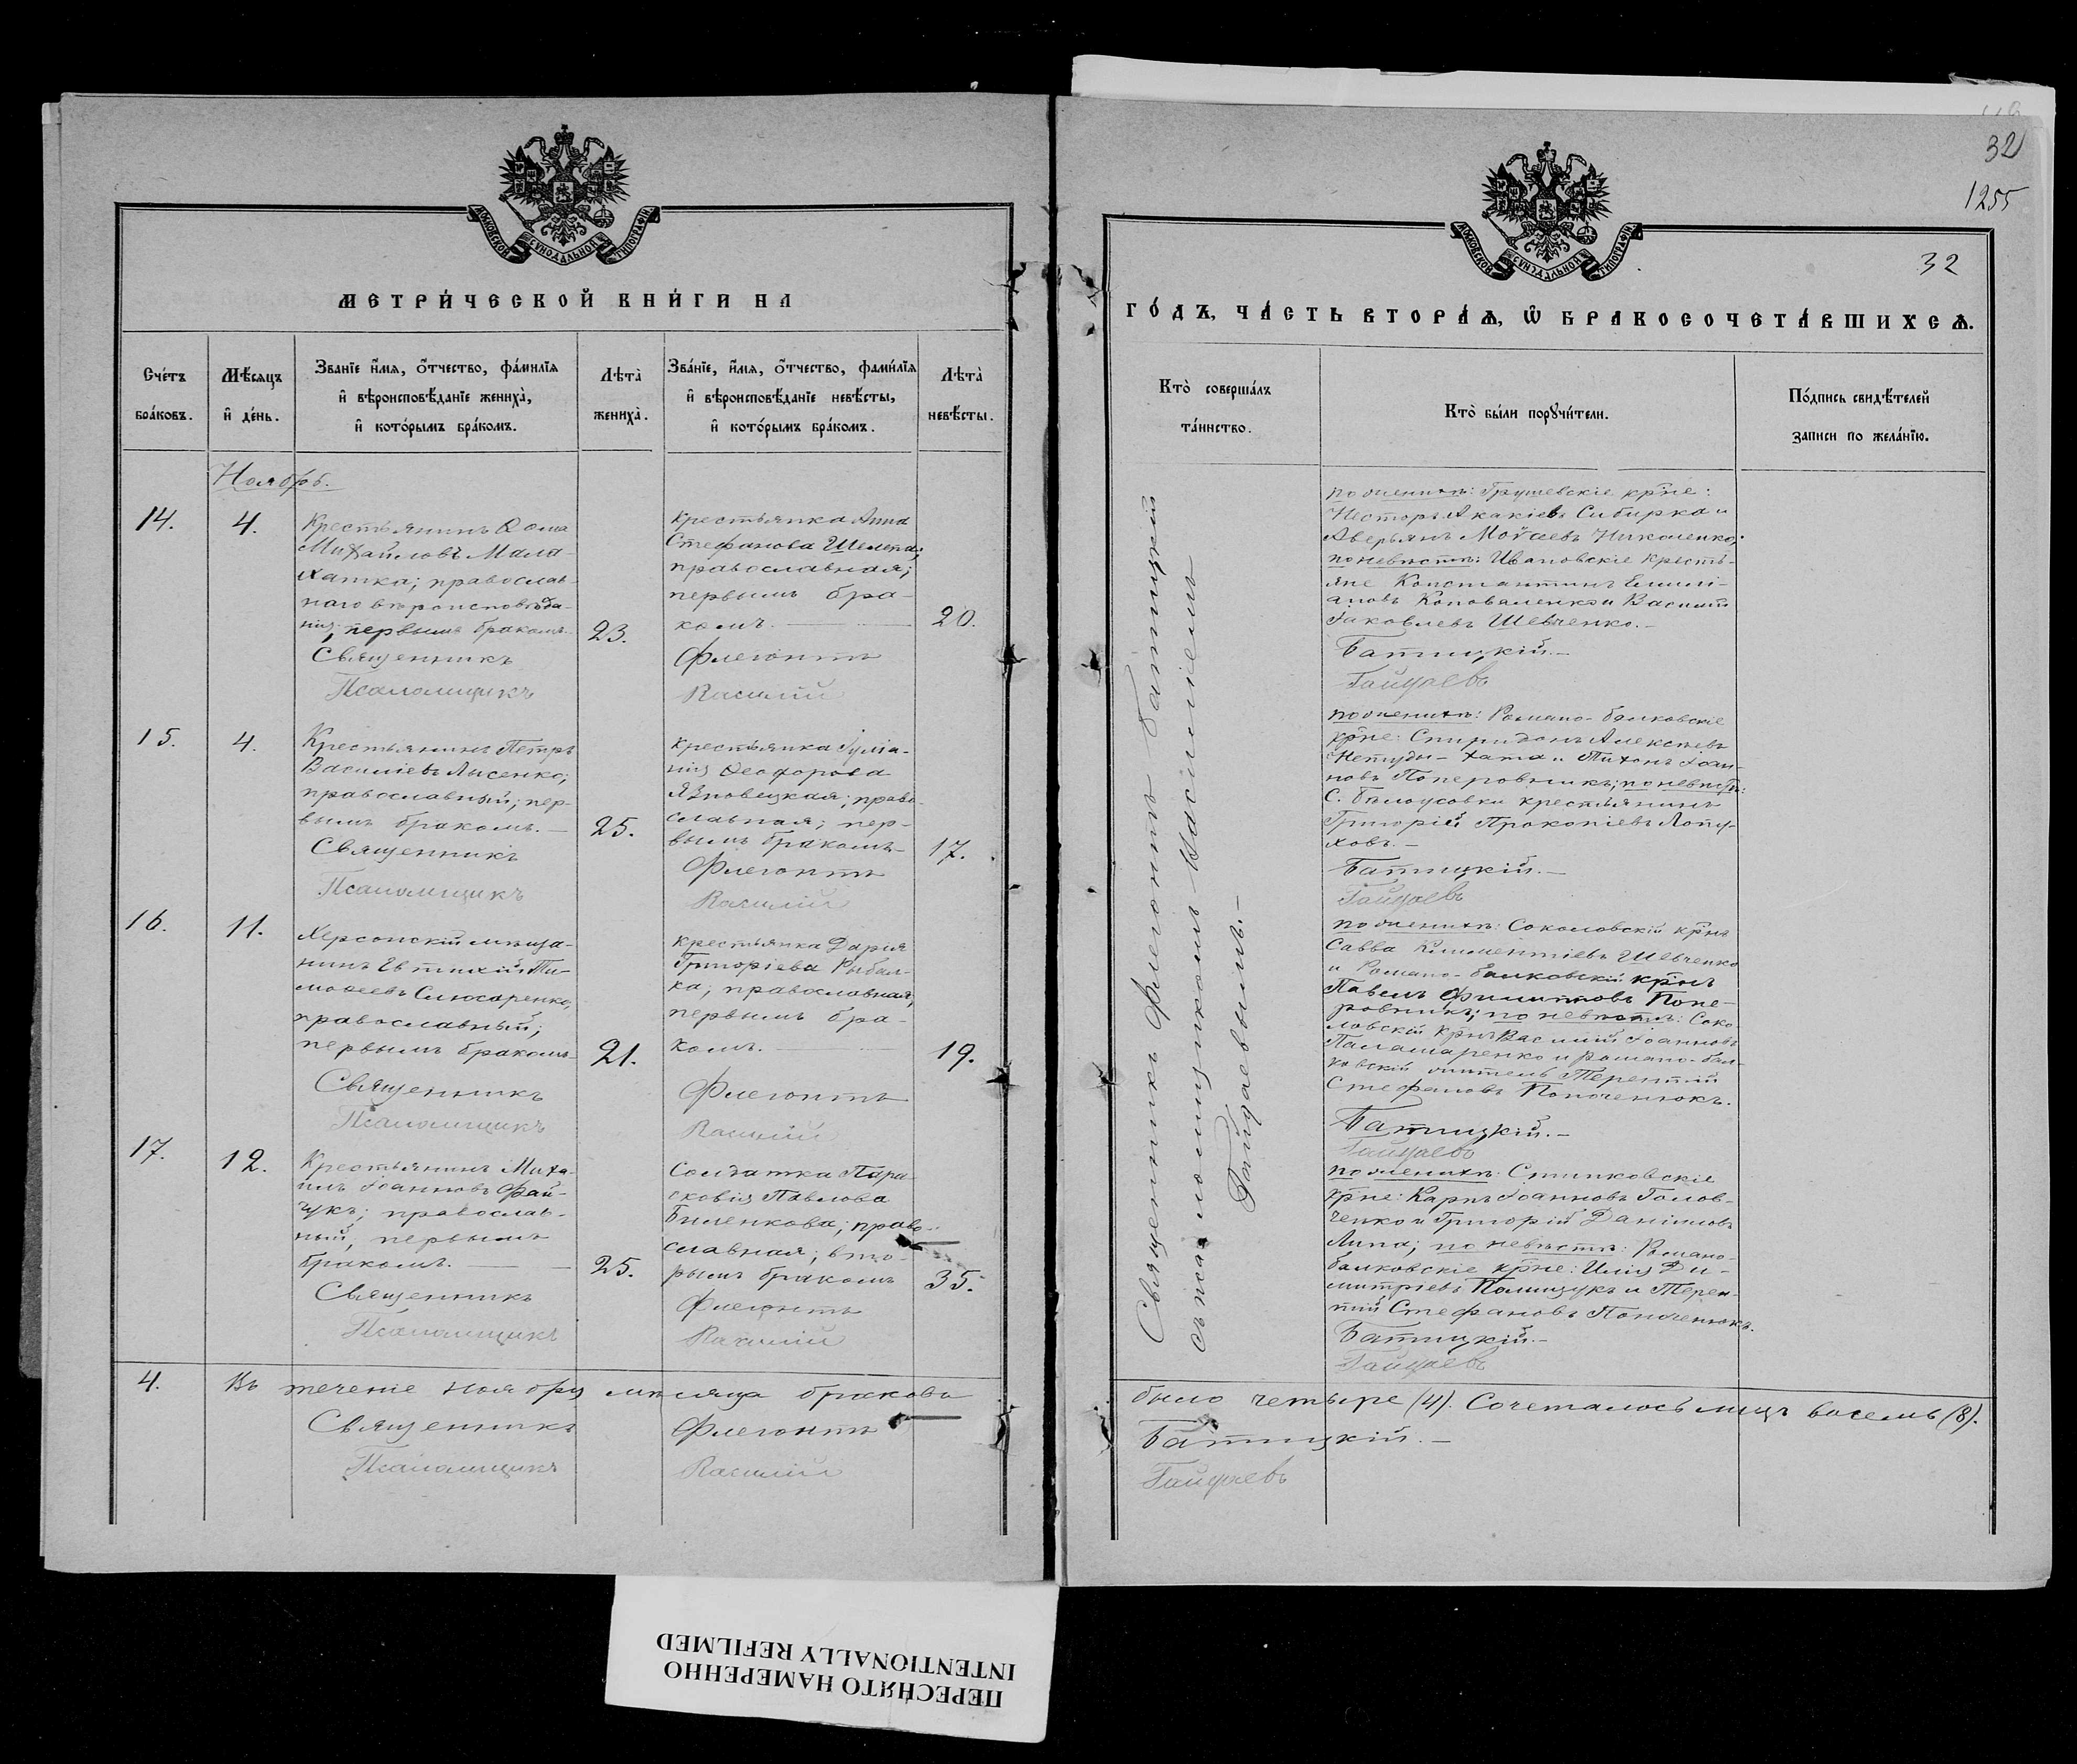 МОСКОВСКОЙ СУНОДАЛЬНОЙ ТИПОГРАФІИ.
МЕТРИ́ЧЕСКОЙ КНИ́ГИ НА
Сче́тъ бра́ковъ.
Мѣ́сяцъ и҆ де́нь.
Зва́нїе и҆́мѧ, ѻ҆́тчество, фамѝлїѧ
и҆ вѣроисповѣ́данїе женихà,
и҆ кото́рымъ бра́комъ.
Лѣтà женихà.
Зва́нїе, и҆́мѧ, ѻ҆́тчество, фами́лїѧ
и҆ вѣроисповѣ́данїе невѣ́сты,
и҆ кото́рымъ бра́комъ.
Лѣтà невѣ́сты.
Ноябрь.
14.
4.
Крестьянинъ Ѳома
Михайловъ Мала-
хатка; православ-
наго вѣроисповѣда-
нія, первымъ бракомъ.
23.
Крестьянка Анна
Стефанова Шелепа;
православная;
первымъ бра-
комъ.
20.
Священникъ Флегонтъ
Псаломщикъ Василій
15.
4.
Крестьянинъ Петръ
Василіевъ Лысенко;
православный; пер-
вымъ бракомъ.—
25.
Крестьянка Іуліа-
нія Ѳеодорова
Язловецкая; право-
славная; пер-
вымъ бракомъ.
17.
Священникъ Флегонтъ
Псаломщикъ Василій
16.
11.
Херсонскій мѣща-
нинъ Евтихій Ти-
моѳеевъ Слюсаренко,
православный;
первымъ бракомъ.
21.
Крестьянка Дарія
Григоріева Рыбал-
ка; православная,
первымъ бра-
комъ.
19.
Священникъ Флегонтъ
Псаломщикъ Василій
17.
12.
Крестьянинъ Миха-
илъ Іоанновъ Фай-
чукъ; православ-
ный, первымъ
бракомъ.
25.
Солдатка Пара-
сковія Павлова
Биленкова; право-
славная; вто-
рымъ бракомъ
35.
Священникъ Флегонтъ
Псаломщикъ Василій
4. Въ теченіе ноября мѣсяца браковъ
Священникъ Флегонтъ
Псаломщикъ Василій
32
1255
МОСКОВСКОЙ СУНОДАЛЬНОЙ ТИПОГРАФІИ.
32
ГО́ДЪ, ЧА́СТЬ ВТОРА́Ѧ, Ѽ БРАКОСОЧЕТА́ВШИХСѦ.
Кто̀ соверша́лъ та́инство.
Кто̀ бы́ли порꙋчи́тели.
По́дпись свидѣ́телей
записи по жела́нїю.
Священникъ Флегонтъ Батицкій
съ псаломщикомъ Василіемъ
Гайдаевымъ.—
по женихѣ: Грушевскіе кр-не:
Несторъ Акакіевъ Сибирка и
Аверьянъ Мойсеевъ Николенко;
по невѣстѣ: Ивановскіе кресть-
яне Константинъ Емилі-
ановъ Коноваленко и Василій
Яковлевъ Шевченко.—
Батицкій.—
Гайдаевъ
по женихѣ: Романо-балковскіе
кр-не: Спиридонъ Алексѣевъ
Непуды-хата и Тихонъ Іоан-
новъ Поперовникъ; по невѣстѣ:
С. Бѣлоусовки крестьянинъ
Григорій Прокопіевъ Лопу-
ховъ.—
Батицкій.—
Гайдаевъ
по женихѣ: Соколовскій кр-нъ
Савва Климентіевъ Шевченко
и Романо-балковскій кр-нъ
Павелъ Филипповъ Попе-
ровникъ; по невѣстѣ: Соко-
ловскій кр-нъ Василій Іоанновъ
Паламаренко и романо-бал-
ковскій житель Терентій
Стефановъ Поноченюкъ.
Батицкій.—
Гайдаевъ
по женихѣ: Стипковскіе
кр-не: Карпъ Іоанновъ Голов-
ченко и Григорій Даніиловъ
Липа; по невѣстѣ: Романо-
балковскіе кр-не: Илія Ди-
митріевъ Полищукъ и Терен-
тій Стефановъ Поноченюкъ.
Батицкій.—
Гайдаевъ
было четыре (4). Сочеталось лицъ восемь (8).
Батицкій.—
Гайдаевъ
ПЕРЕСНЯТО НАМЕРЕННО
INTENTIONALLY REFILMED